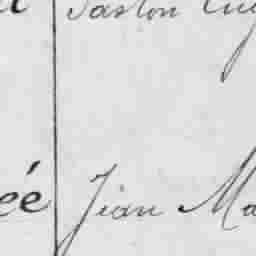 Gaston Eug
ée Jean Ma